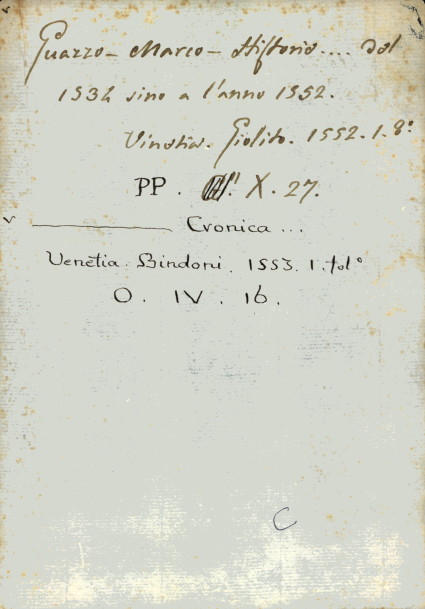 Guazzo - Marco - Historie .... dal
1534 sino a l'anno 1552.
Vinetia. Giolito. 1552. 1. 8°
PP. X. 27.
v ———— Cronica ...
Venetia. Bindoni. 1553. 1. fol°
O. IV. 16.
C